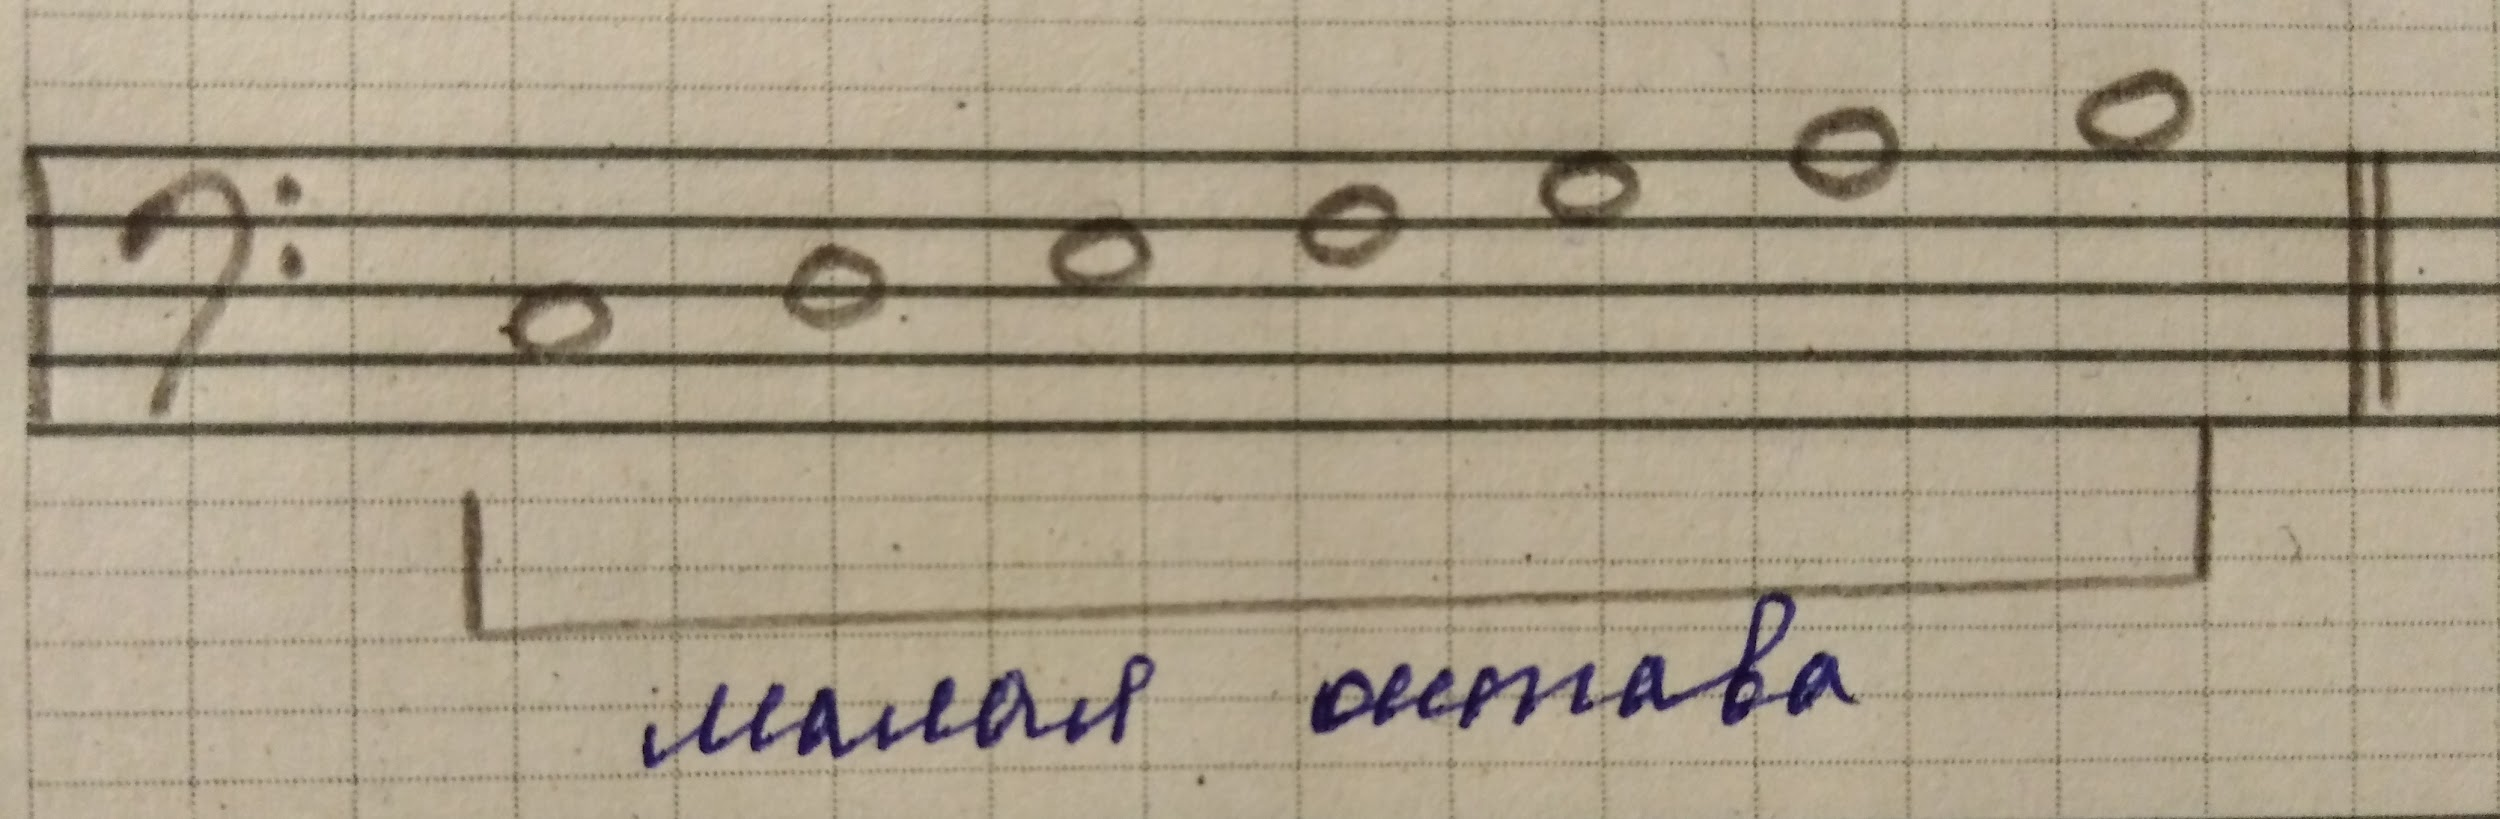 малая октава